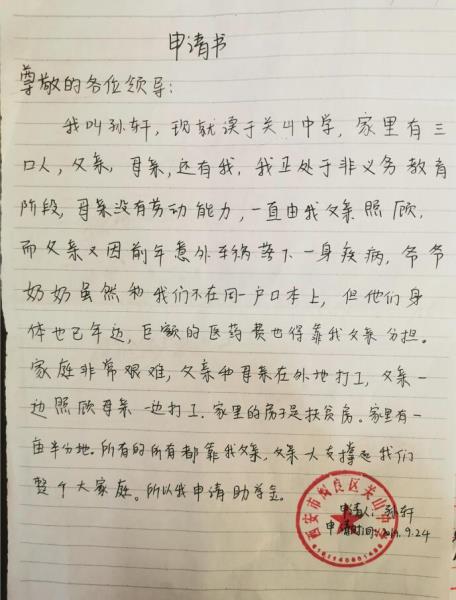 申请书
尊敬的各位领导:
我叫孙轩,现就读于关山中学,家里有三
口人,父亲,母亲,还有我,我正处于非义务教育
阶段,母亲没有劳动能力,一直由我父亲照顾,
而父亲又因前年意外车祸落下一身疾病,爷爷
奶奶虽然和我们不在同一户口本上,但他们身
体也已年迈,巨额的医药费也得靠我父亲分担。
家庭非常艰难,父亲和母亲在外地打工,父亲一
边照顾母亲一边打工.家里的房子是扶贫房。家里有一
亩半分地。所有的所有都靠我父亲,父亲一人支撑起我们
整个大家庭。所以我申请助学金。
申请人:孙轩
申请时间:2019.9.24
西安市阎良区关山中学